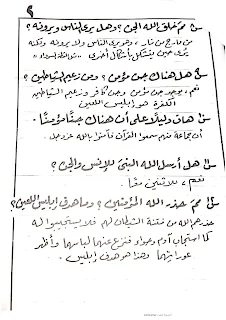 ٩
س مم خلق الله الجن ؟ وهل يرى الناس ويرونه ؟
من مارج من نار ، وهو يرى الناس ولا يرونه ولكنه
يرى حين يتشكل بأشكال أخرى
س هل هناك جن مؤمن ؟ ومن زعيم الشياطين ؟
نعم ، يوجد جن مؤمن وجن كافر وزعيم الشياطين
الكفرة هو إبليس اللعين
س هات دليلا على أن هناك جنا مؤمنا .
أن جماعة منهم سمعوا القرآن فآمنوا بالله عز وجل .
س هل أرسل الله النبى للإنس والجن ؟
نعم ، للاثنين معا .
س مم حذر الله المؤمنين ؟ وما هدف إبليس اللعين ؟
حذرهم الله من فتنة الشيطان لهم فلا يستجيبوا له
كما استجاب آدم وحواء فنزع عنهما لباسهما وأظهر
عوراتهما وهذا هو هدف إبليس .